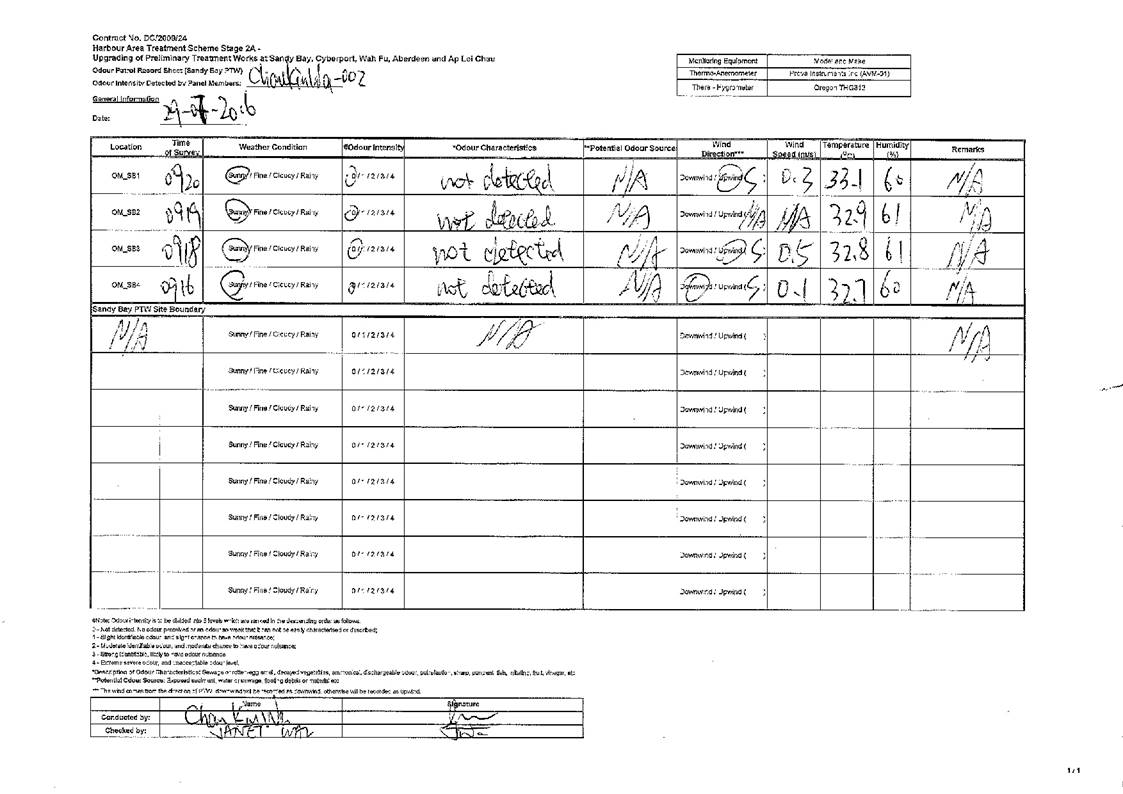 Contract No. DC/2009/24
Harbour Area Treatment Scheme Stage 2A -
Upgrading of Preliminary Treatment Works at Sandy Bay, Cyberport, Wah Fu, Aberdeen and Ap Lei Chau
Odour Patrol Record Sheet (Sandy Bay PTW)
Odour Intensity Detected by Panel Members: -002
General Information
Date: -2016
Monitoring Equipment Model and Make
Thermo-Anemometer Prova Instruments Inc (AVM-01)
Thermo - Hygrometer Oregon THG312
Location Time of Survey Weather Condition #Odour Intensity *Odour Characteristics **Potential Odour Source Wind Direction*** Wind Speed (m/s) Temperature (°C) Humidity (%) Remarks
OM_SB1 0920 Sunny / Fine / Cloudy / Rainy 0 / 1 / 2 / 3 / 4 not detected N/A Downwind / Upwind ( S ) 0.3 33.1 60 N/A
OM_SB2 0919 Sunny / Fine / Cloudy / Rainy 0 / 1 / 2 / 3 / 4 not detected N/A Downwind / Upwind ( N/A N/A 32.9 61 N/A
OM_SB3 0918 Sunny / Fine / Cloudy / Rainy 0 / 1 / 2 / 3 / 4 not detected N/A Downwind / Upwind ( S ) 0.5 32.8 61 N/A
OM_SB4 0916 Sunny / Fine / Cloudy / Rainy 0 / 1 / 2 / 3 / 4 not detected N/A Downwind / Upwind ( S ) 0.1 32.7 60 N/A
Sandy Bay PTW Site Boundary
N/A Sunny / Fine / Cloudy / Rainy 0 / 1 / 2 / 3 / 4 N/A Downwind / Upwind ( ) N/A
Sunny / Fine / Cloudy / Rainy 0 / 1 / 2 / 3 / 4 Downwind / Upwind ( )
Sunny / Fine / Cloudy / Rainy 0 / 1 / 2 / 3 / 4 Downwind / Upwind ( )
Sunny / Fine / Cloudy / Rainy 0 / 1 / 2 / 3 / 4 Downwind / Upwind ( )
Sunny / Fine / Cloudy / Rainy 0 / 1 / 2 / 3 / 4 Downwind / Upwind ( )
Sunny / Fine / Cloudy / Rainy 0 / 1 / 2 / 3 / 4 Downwind / Upwind ( )
Sunny / Fine / Cloudy / Rainy 0 / 1 / 2 / 3 / 4 Downwind / Upwind ( )
Sunny / Fine / Cloudy / Rainy 0 / 1 / 2 / 3 / 4 Downwind / Upwind ( )
#Note: Odour intensity is to be divided into 5 levels which are ranked in the descending order as follows:
0 - Not detected. No odour perceived or an odour so weak that it can not be easily characterised or described;
1 - Slight identifiable odour, and slight chance to have odour nuisance;
2 - Moderate identifiable odour, and moderate chance to have odour nuisance;
3 - Strong identifiable, likely to have odour nuisance
4 - Extreme severe odour, and unacceptable odour level.
*Description of Odour Characteristics: Sewage or rotten-egg smell, decayed vegetables, ammonical, dischargeable odour, putrefaction, sharp, pungent, fish, irritating, fruit, vinegar, etc
**Potential Odour Source: Exposed sediment, water or sewage, floating debris or material etc
*** The wind comes from the direction of PTW, downwind will be recorded as downwind, otherwise will be recorded as upwind.
Name Signature
Conducted by: Chan
Checked by: JANET
1 / 1